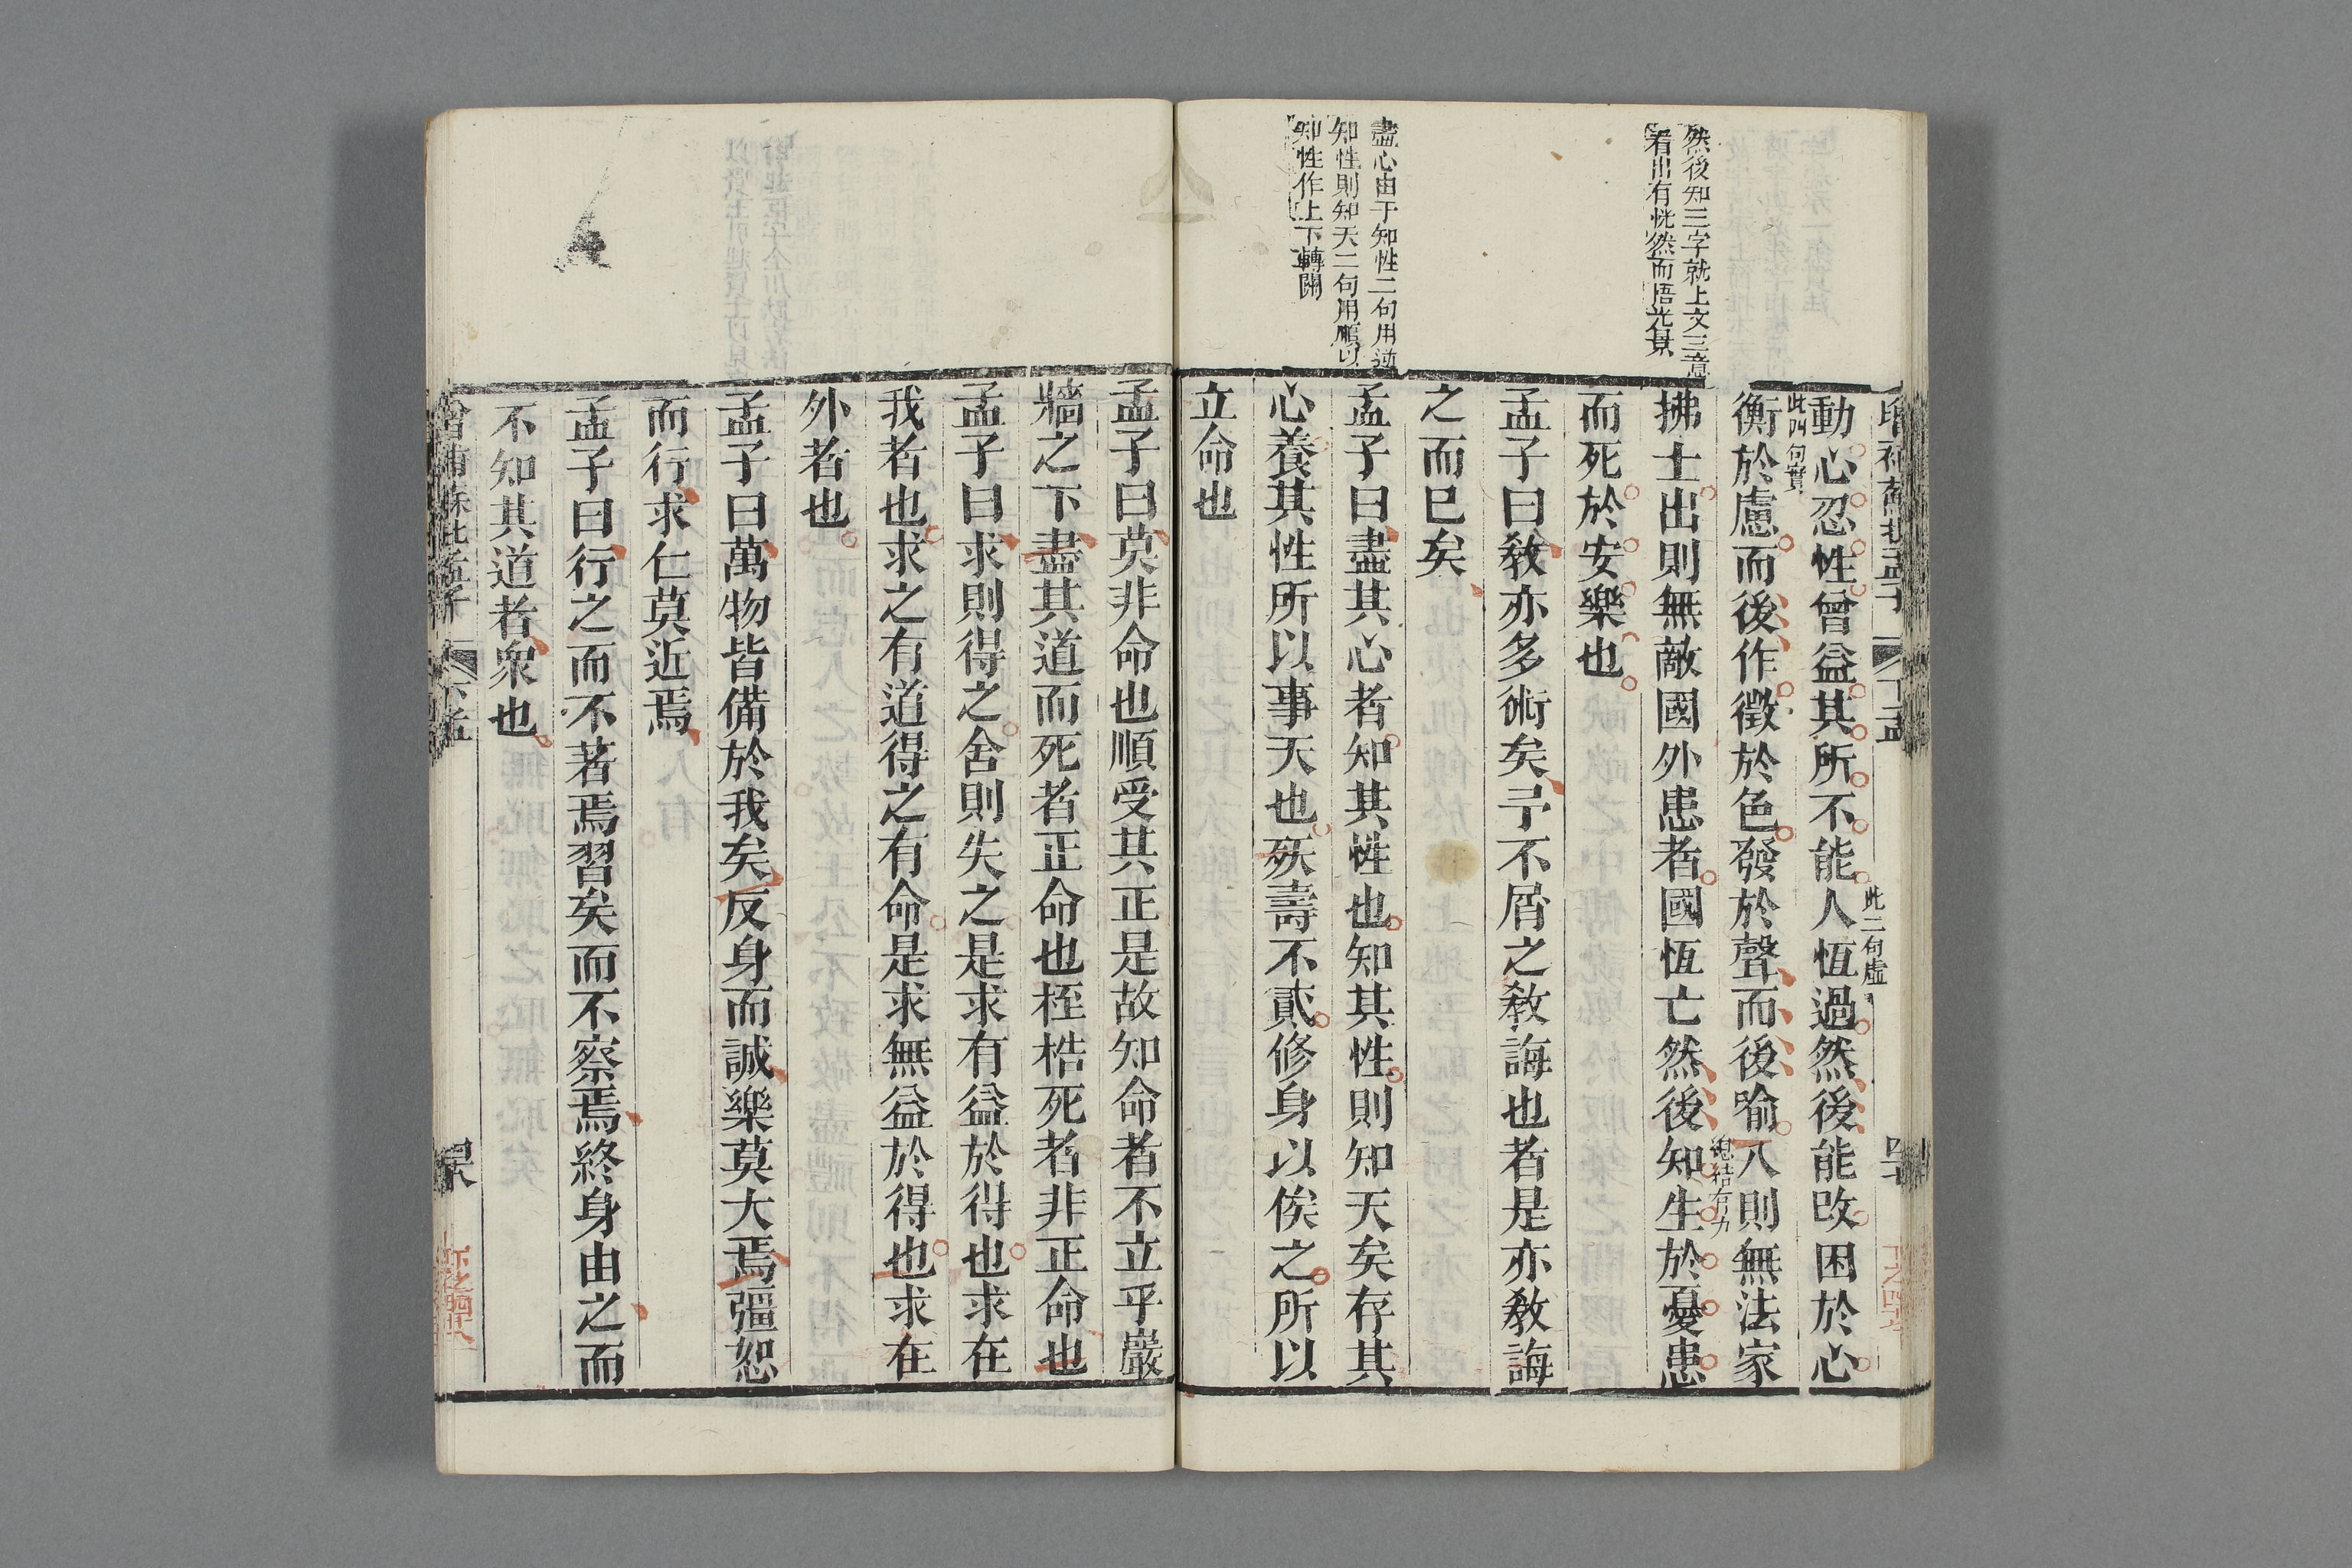 然後知三字就上文三意
看出有恍然而悟光景
盡心由于知性二句用逆
知性則知天二句用順以
知性作上下轉關
增補蘇批孟子
動心忍性曾益其所不能人恆過然後能改困於心
此二句虛
此四句實
衡於慮而後作徵於色發於聲而後喻入則無法家
拂士出則無敵國外患者國恆亡然後知生於憂患
總結有力
而死於安樂也
孟子曰敎亦多術矣予不屑之敎誨也者是亦敎誨
之而已矣
孟子曰盡其心者知其性也知其性則知天矣存其
心養其性所以事天也殀壽不貳修身以俟之所以
立命也
孟子曰莫非命也順受其正是故知命者不立乎巖
牆之下盡其道而死者正命也桎梏死者非正命也
孟子曰求則得之舍則失之是求有益於得也求在
我者也求之有道得之有命是求無益於得也求在
外者也
孟子曰萬物皆備於我矣反身而誠樂莫大焉彊恕
而行求仁莫近焉
孟子曰行之而不著焉習矣而不察焉終身由之而
不知其道者衆也
增補蘇批孟子